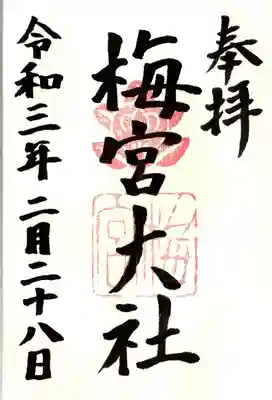 奉拝
梅宮大社
令和三年二月二十八日
梅宮